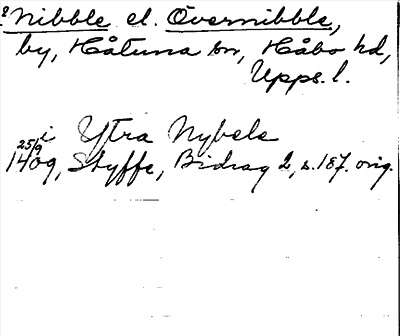 2 Nibble el. Övernibble,
by, Håtuna sn, Håbo hd,
Upps. l.
i Ytra Nybele
25/9 1409, Styffe, Bidrag 2, s. 187. orig.